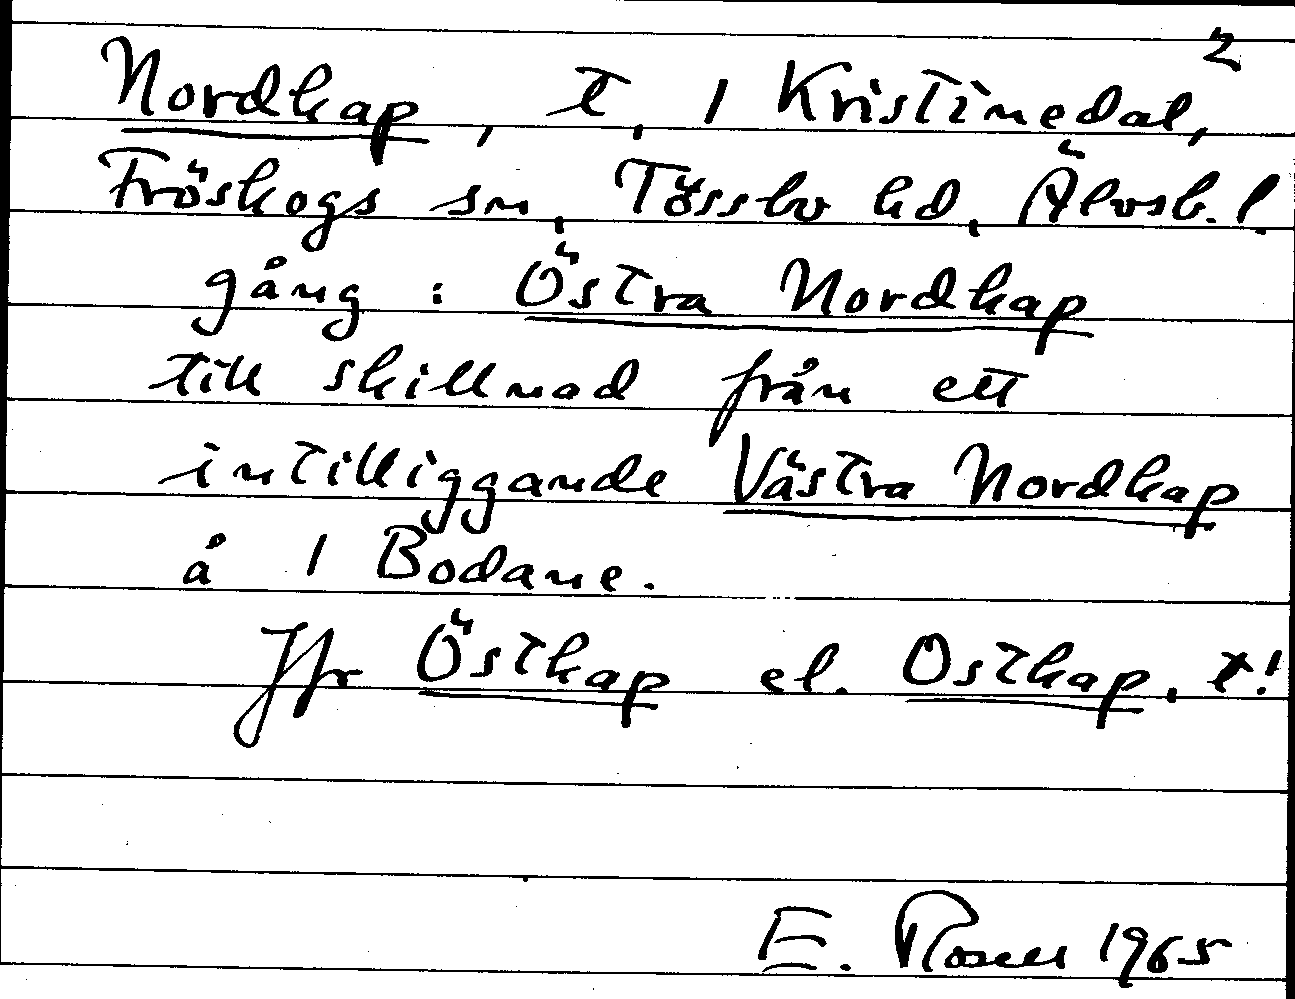 Nordkap, t, 1 Kristinedal, 2
Fröskogs sn, Tössbo hd, Älvsb. l.
gång : Östra Nordkap
till skillnad från ett
intilliggande Västra Nordkap
å 1 Bodane.
Jfr Östkap el. Ostkap, t!
E. Rosell 1965